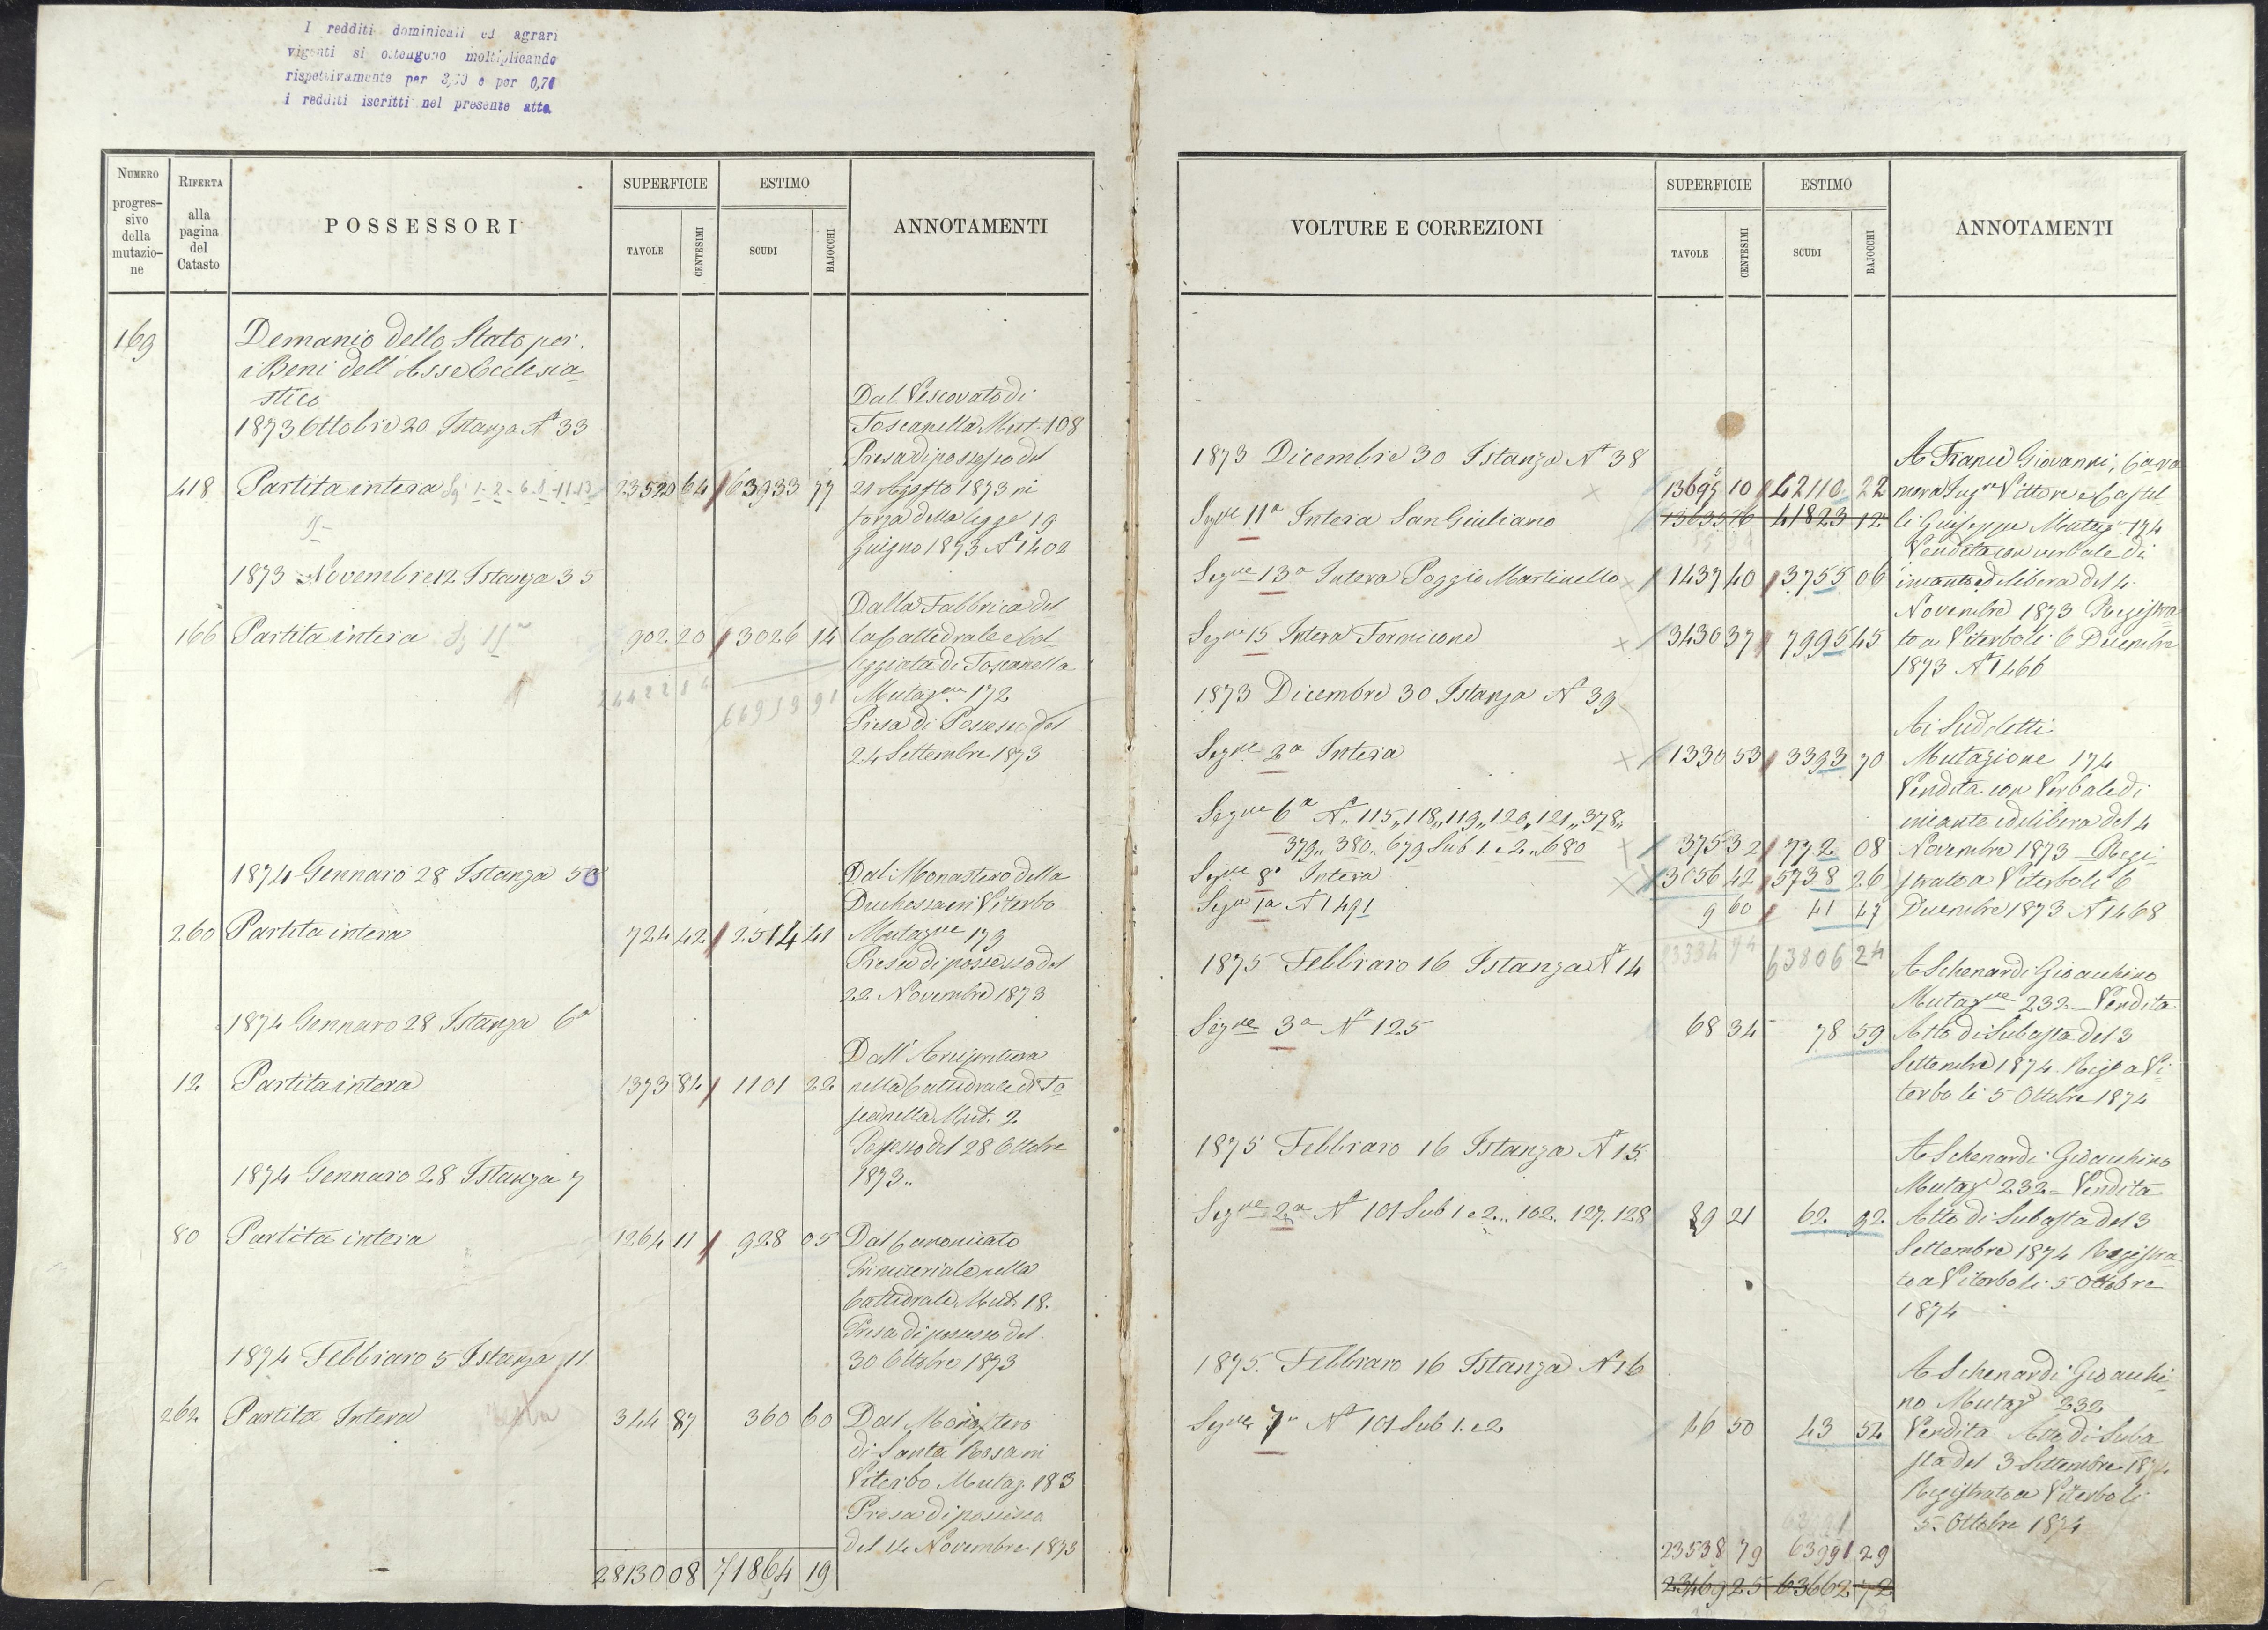 I redditi dominicali ed agrari
vigenti si ottengono moltiplicando
rispettivamente per e per 0,70
i redditi iscritti nel presente atto.
NUMERO
progres-
sivo
della
mutazio-
ne
RIFERTA
alla
pagina
del
Catasto
POSSESSORI
SUPERFICIE
TAVOLE
CENTESIMI
ESTIMO
SCUDI
BAJOCCHI
ANNOTAMENTI
169
Demanio dello Stato per
i Beni dell' Asse Ecclesia-
stico
1873 Ottobre 20 Istanza N° 33
418 Partita intera 23520 64 63933 77
1873 Novembre 12 Istanza 35
166 Partita intera 902 20 3026 14
26422 84 66959 91
1874 Gennaro 28 Istanza 5a
260 Partita intera 724 42 2514 41
1874 Gennaro 28 Istanza 6a
12 Partita intera 1373 84 1101 22
1874 Gennaro 28 Istanza 7
80 Partita intera 1264 11 928 05
1874 Febbraro 5 Istanza 11
262 Partita Intera 344 87 360 60
28130 08 71864 19
Dal Vescovato di
Toscanella Mut. 108
Presa di possesso del
21 Agosto 1873 in
forza della legge 19
Giugno 1873 N° 1402
Dalla Fabbrica del
la Cattedrale e Col-
leggiata di Toscanella
Mutazne 172
Presa di Possesso del
24 Settembre 1873
Dal Monastero della
Duchessa in Viterbo
Mutazne 173
Presa di possesso del
22 Novembre 1873
Dall'
nella Cattedrale di To
scanella Mut. 2
Possesso del 28 Ottobre
1873..
Dal Canonicato
Primiceriale nella
Cattedrale Mut. 18.
Presa di possesso del
30 Ottobre 1873
Dal Monastero
di Santa Rosa in
Viterbo Mutaz. 183
Presa di possesso
del 14 Novembre 1873
VOLTURE E CORREZIONI
SUPERFICIE
TAVOLE
CENTESIMI
ESTIMO
SCUDI
BAJOCCHI
ANNOTAMENTI
1873 Dicembre 30 Istanza N° 38
13697 10 42110 22
Segne 11a Intera San Giuliano 41823 12
Segne 13a Intera Poggio Martinello 1437 40 3755 06
Segne 15 Intera Formicone 3430 37 7995 45
1873 Dicembre 30 Istanza N° 39
Segne 2a Intera 1330 53 3393 70
Segne 6a N. 115,, 118,, 119,, 120,, 121,, 378,,
379,, 380,, 679 Sub 1. e 2,, 680 375 32 772 08
Segne 8a Intera 3056 42 5738 26
Segne 1a N° 1491 9 60 41 47
23336 74 63806 24
1875 Febbraro 16 Istanza N° 14
Segne 3a N° 125 68 34 78 59
1875 Febbraro 16 Istanza N° 15
Segne 2a N° 101 Sub 1 e 2.. 102. 127. 128 89 21 62 92
1875. Febbraro 16 Istanza N° 16
Segne 7a N° 101 Sub 1. e 2 46 50 43 54
23538 79 63991 29
23469 25 63662 72
A Franci Giovanni, Cava
Vittore e Castel
li Giuseppe Mutaz. 174
Vendita con verbale di
incanto e delibera del 4
Novembre 1873 Registra-
to a Viterbo li 6 Dicembre
1873 N° 1466
Ai Suddetti
Mutazione 174
Vendita con Verbale di
incanto e delibera del 4
Novembre 1873 Regi-
strato a Viterbo li 6
Dicembre 1873 N° 1468
A Schenardi Gioacchino
Mutazne 232 Vendita
Atto di Subasta del 3
Settembre 1874 Rego a Vi-
terbo li 5 Ottobre 1874
A Schenardi Gioacchino
Mutaze 232 Vendita
Atto di Subasta del 3
Settembre 1874 Registra
to a Viterbo li 5 Ottobre
1874
A Schenardi Gioacchi-
no Mutaze 232
Vendita Atto di Suba
sta del 3 Settembre 1874
Registrato a Viterbo li
5. Ottobre 1874